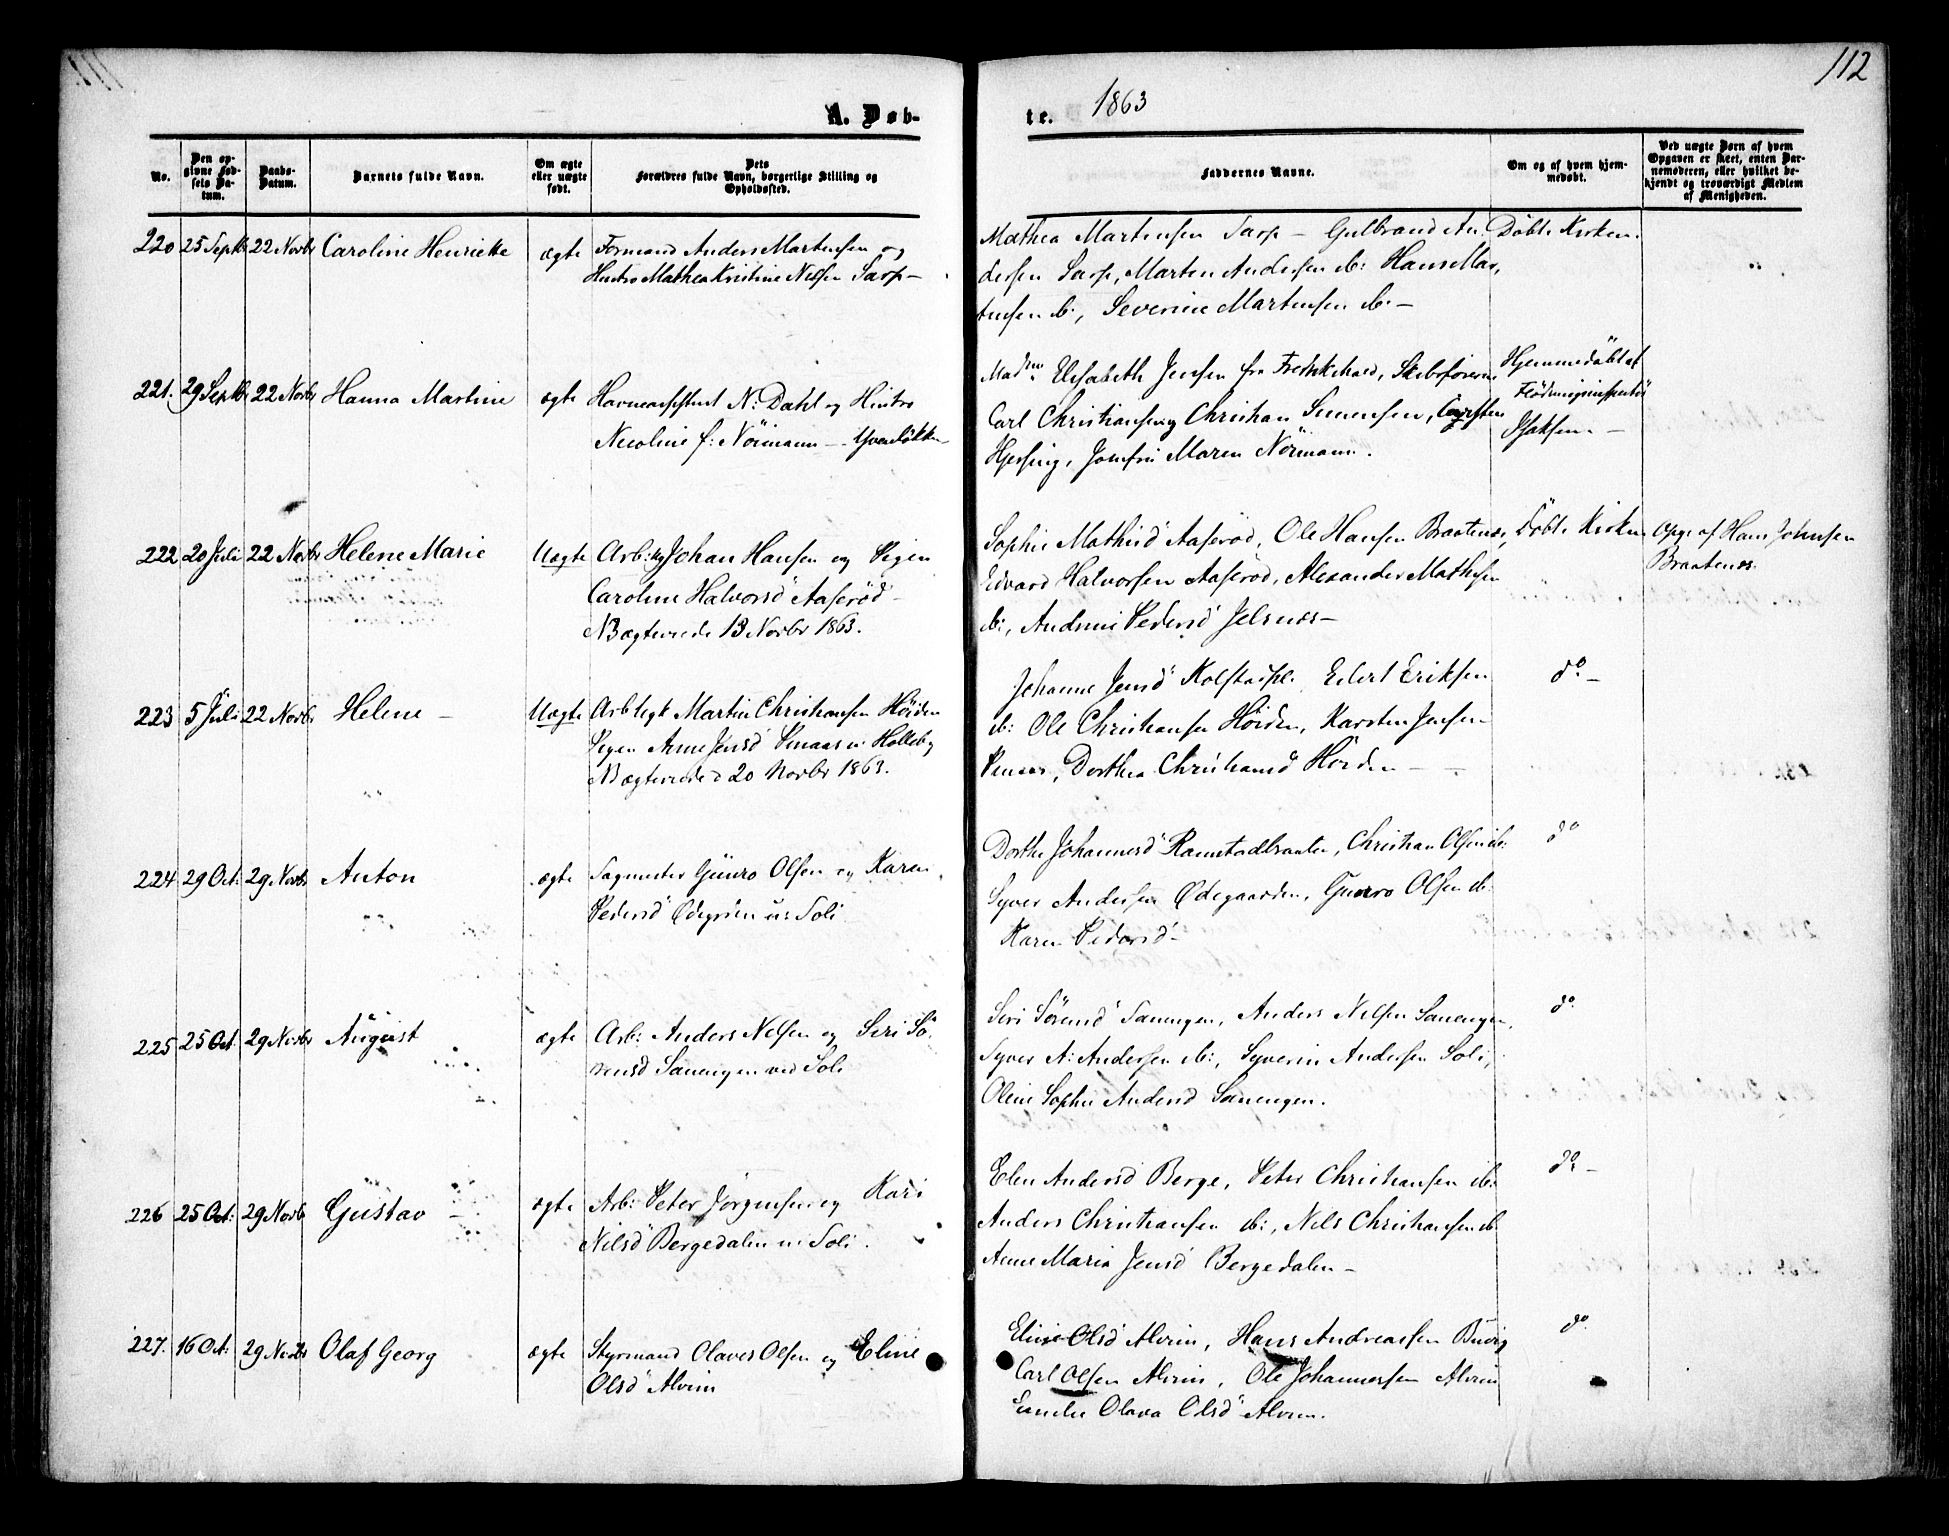 112
1863
A. Døb-
te.
No.
Den op-
givne Fød-
sels Da-
tum.
Daabs-
Datum.
Barnets fulde Navn.
Om ægte
eller uægte
født.
Dets
Forældres fulde Navn, borgerlige Stilling og
Opholdssted.
Faddernes Navne.
Om og af hvem hjem-
medøbt.
Ved uægte Børn af hvem
Opgaven er skeet, enten Bar-
nemoderen, eller hvilket be-
kjendt og troværdigt Medlem
af Menigheden.
220 25 Septbr 22 Novbr Caroline Henriette ægte Formand Anders Martinsen og
Hustro Mathea Kristine Nilsen Sarp —
Mathea Martinsen Sarp — Gulbrand An-
dersen Sarp, Marten Andersen ib: Hans Mar-
tinsen ib:, Severine Martinsen ib: —
Döbt i Kirken.
221. 29 Septbr 22 Novbr Hanna Martine ægte Havneassistent N: Dahl og Hustro
Nicoline f: Nörmann —
Madm Elisabeth Jensen fra Fredrikshald, Skibsförerne
Carl Christiansen og Christian Simensen, Carsten
Hjersing, Jomfru Maren Nörmann.
Hjemmedöbt af
Flödningsinspectör
Isaksen —
222 20 Juli 22 Novbr Helene Marie Uægte Arb: Johan Hansen og Pigen
Caroline Halvorsd Aaseröd —
NB ægteviede 13 Novbr 1863.
Sophie Mathisd Aaseröd, Ole Hansen Braatenes,
Edvard Halvorsen Aaseröd, Alexander Mathisen
ib:, Andrine Pedersd Jelsnes —
Döbt i Kirken
Opg: af Hans Johnsen
Braatenes.
223 5 Juli 22 Novbr Helene — Uægte Arb Ungk Martin Christiansen Höiden
Pigen Anne Jensd u: Holleby
NB ægteviede d 20 Novbr 1863.
Johanne Jensd Kolstadpl: Edert Eriksen
ib: Ole Christiansen Höiden, Karsten Jensen
Dorthea Christiansd Höiden —
do —
224 29 Oct: 29 Novbr Anton ægte Sagmester Gunro Olsen og Karen
Pedersd Ödegrden u: Soli
Dorthe Johannesd Ramstadbraaten, Christian Olsen ib:
Syver Andersen Ödegaarden, Gunro Olsen ib:
Karen Pedersd —
do
225 25 Oct 29 Novbr August ægte Arb: Anders Nelsen og Siri Sö-
rensd Sauengen ved Soli
Siri Sörensd Sauengen, Anders Nelsen Sauengen,
Syver A: Andersen ib:, Syverin Andersen Soli,
Oline Sophie Andersd Sauengen.
do
226 25 Oct: 29 Novb Gustav — ægte Arb: Peter Jörgensen og Kari
Nilsd Bergedalen u: Soli.
Elen Andersd Berge, Peter Christiansen ib:
Anders Christiansen ib:, Nels Christiansen ib:
Anne Maria Jensd Bergedalen —
do —
227. 16 Oct: 29 Novbr Olaf Georg ægte Styrmand Olaves Olsen og Eline
Olsd Alvim
Eline Olsd Alvim, Hans Andreassen Buvig
Carl Olsen Alvim, Ole Johannessen Alvim
Emilie Olava Olsd Alvim.
do